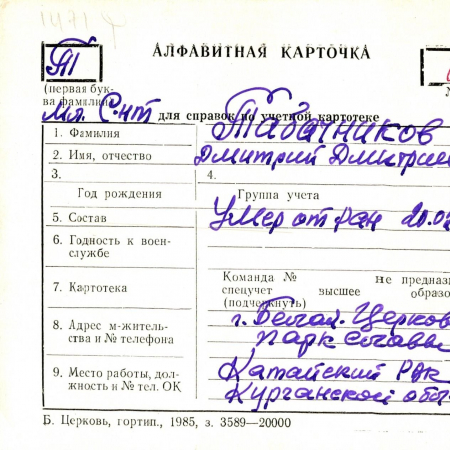 АЛФАВИТНАЯ КАРТОЧКА
Т
(первая бук-
ва фамилии)
Мл. С-нт для справок по учетной картотеке
1. Фамилия Табачников
2. Имя, отчество Дмитрий Дмитрие
3. 4.
Год рождения Группа учета
5. Состав Умер от ран 20.0
6. Годность к воен-
службе
Команда № не предназ
7. Картотека спецучет высшее образо
(подчеркнуть)
г. Белая-Церков
8. Адрес м-житель-
ства и № телефона парк славы
9. Место работы, дол-
жность и № тел. ОК Катайский РВК
Курганской обл
Б. Церковь, гортип., 1985, з. 3589—20000